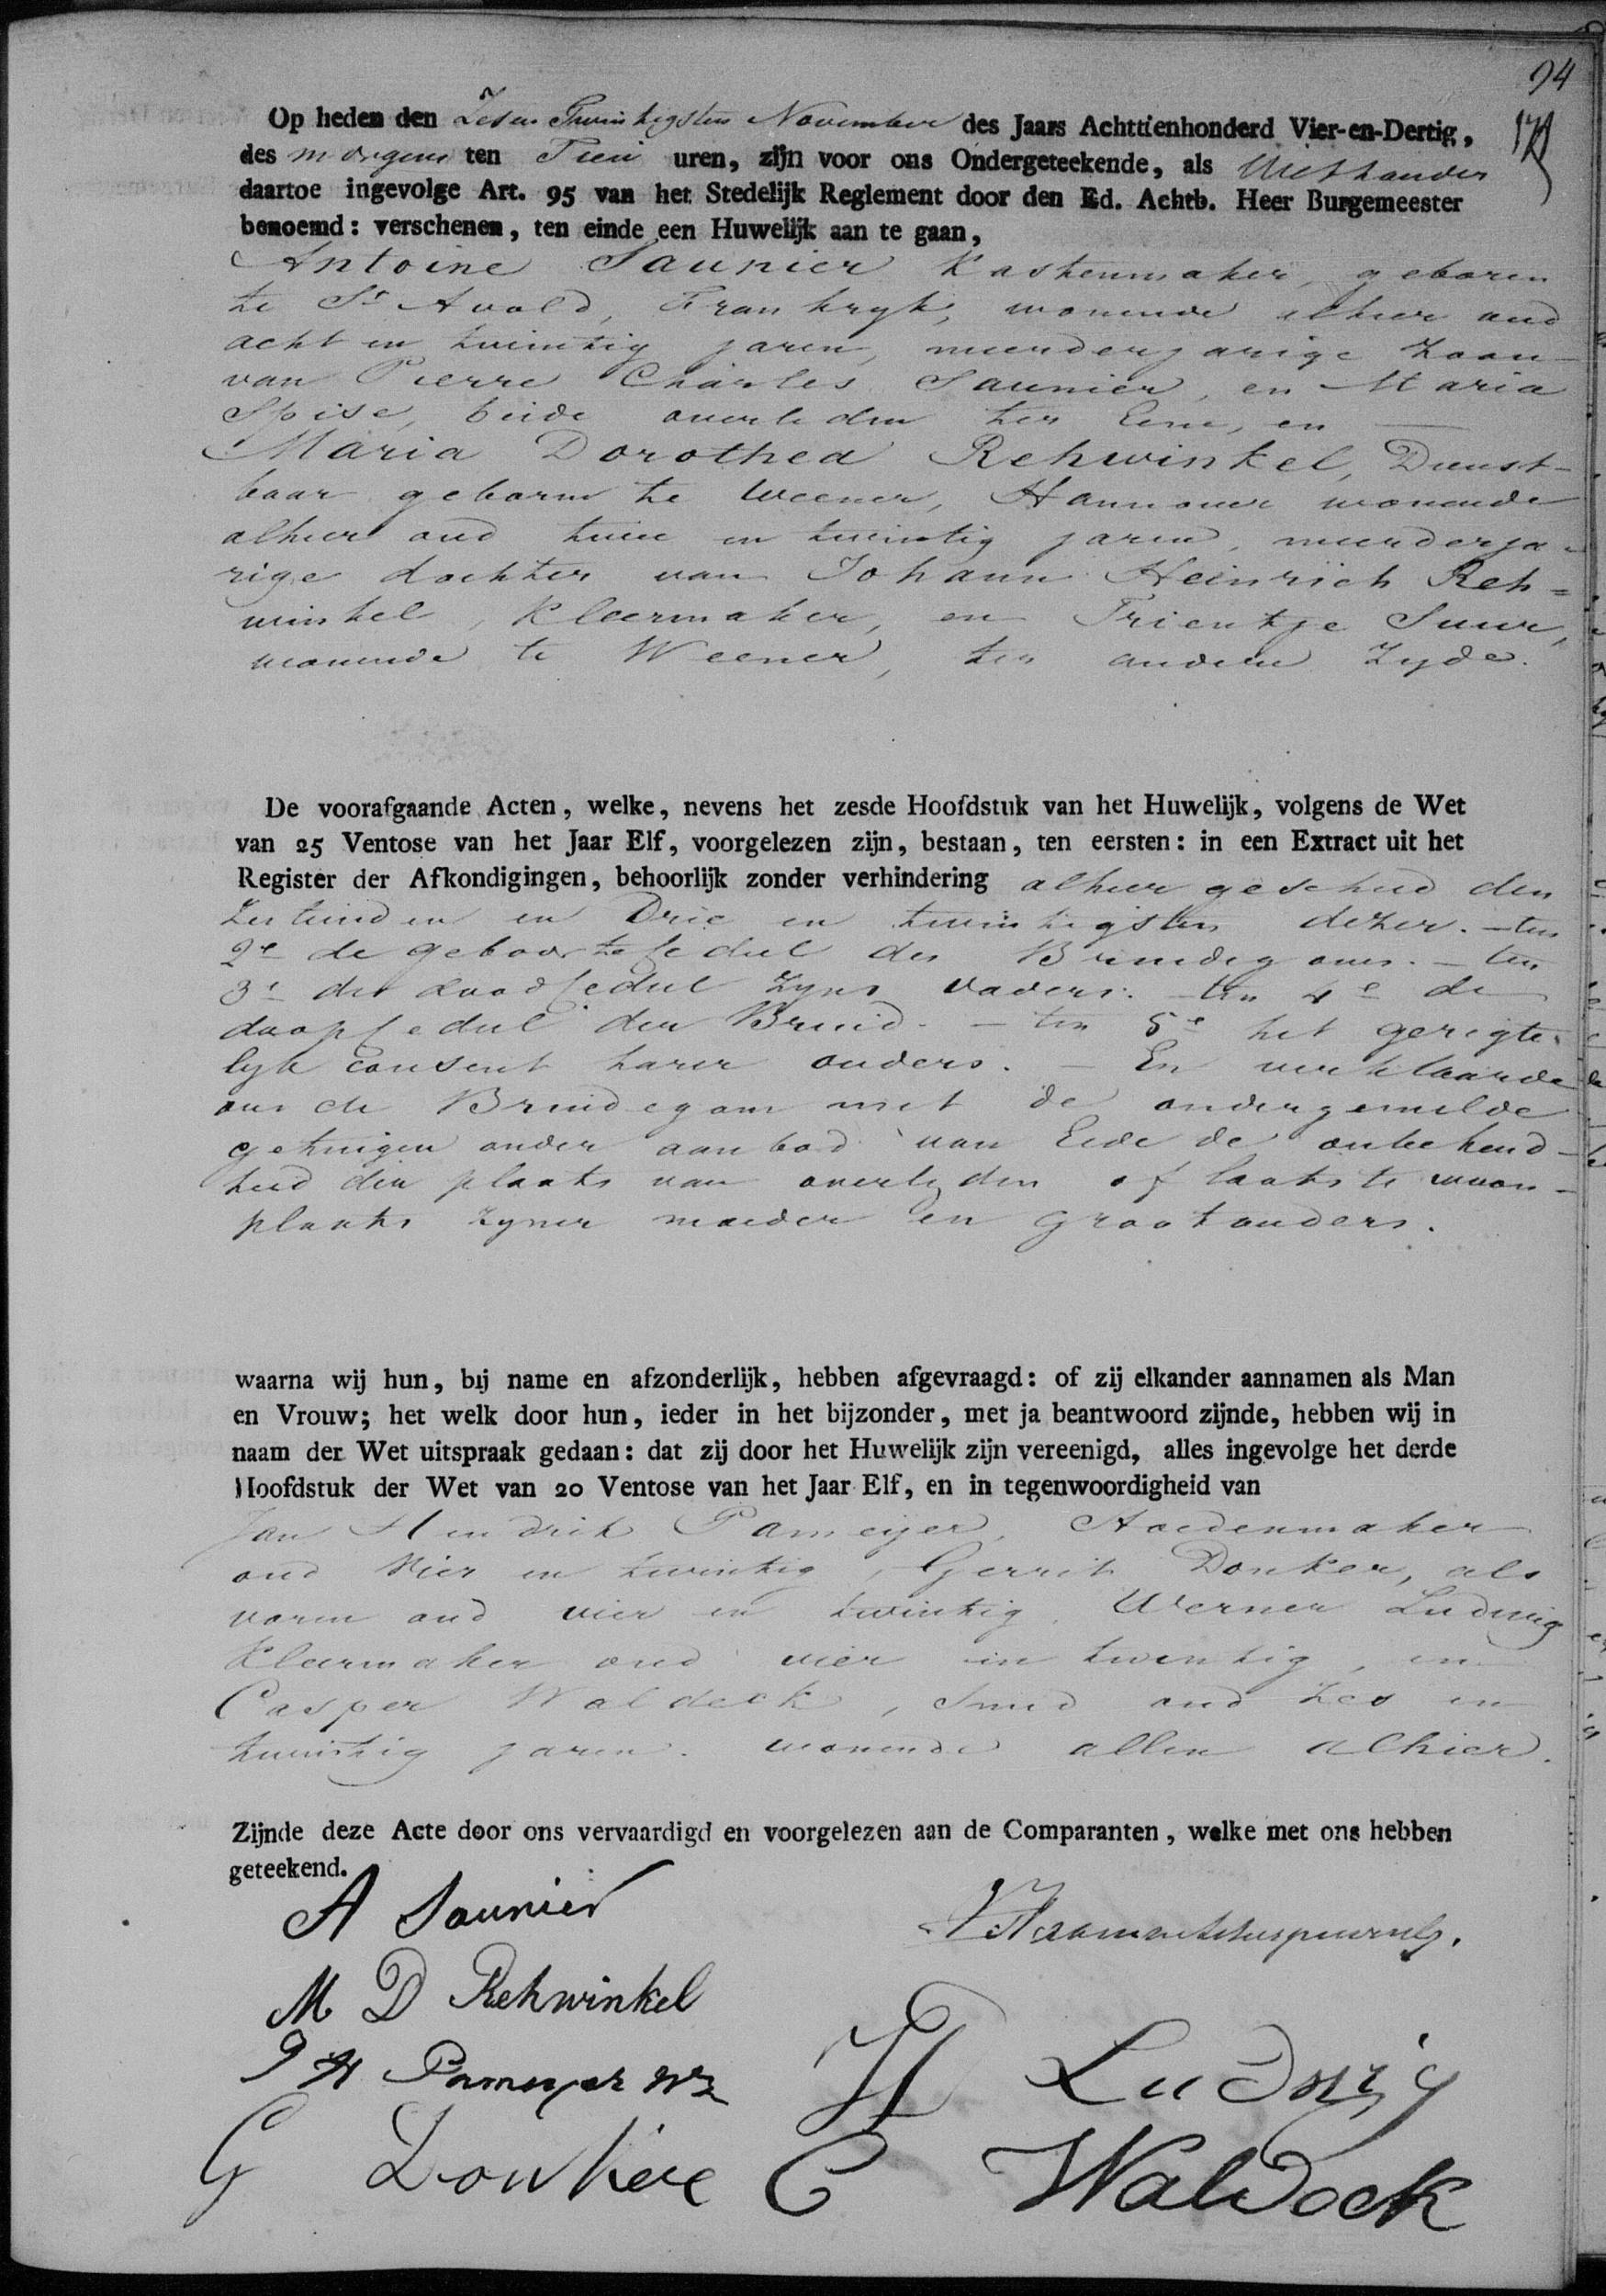 94
Op heden den Zes en Twintigsten November des Jaars Achttienhonderd Vier-en-Dertig,
des morgens ten Tien uren, zijn voor ons Ondergeteekende, als Wethouder
daartoe ingevolge Art. 95 van het Stedelijk Reglement door den Ed. Achtb. Heer Burgemeester
benoemd: verschenen, ten einde een Huwelijk aan te gaan,
Antoine Saunier Kastenmaker, geboren
te St Avold, Frankryk, wonende alhier oud
acht en twintig jaren, meerderjarige zoon
van Pierre Charles Saunier, en Maria
Spise, beide overleden ter Eene, en
Maria Dorothea Rehwinkel, Dienst-
baar geboren te Weener, Hannover wonende
alhier oud twee en twintig jaren, meerderja-
rige dochter van Johann Heinrich Reh=
winkel, Kleermaker, en Trientje Suur,
wonende te Weener, ter andere Zyde.
De voorafgaande Acten, welke, nevens het zesde Hoofdstuk van het Huwelijk, volgens de Wet
van 25 Ventose van het Jaar Elf, voorgelezen zijn, bestaan, ten eersten: in een Extract uit het
Register der Afkondigingen, behoorlijk zonder verhindering alhier geschied den
Zestienden en Drie en twintigsten dezer. – ten
2e de geboortecedul des Bruidegoms. – ten
3e de doodcedul zyns vaders. – ten 4e de
doopcedul der Bruid. – ten 5e het geregte-
lyk consent harer ouders. – En verklaarde
ons de Bruidegom met de ondergemelde
getuigen onder aanbod van Eede de onbekend-
heid der plaats van overlyden of laatste woon-
plaats zyner moeder en grootouders.
waarna wij hun, bij name en afzonderlijk, hebben afgevraagd: of zij elkander aannamen als Man
en Vrouw; het welk door hun, ieder in het bijzonder, met ja beantwoord zijnde, hebben wij in
naam der Wet uitspraak gedaan: dat zij door het Huwelijk zijn vereenigd, alles ingevolge het derde
Hoofdstuk der Wet van 20 Ventose van het Jaar Elf, en in tegenwoordigheid van
Jan Hendrik Pameijer, Hoedenmaker
oud Vier en twintig, Gerrit Donker, als
voren oud vier en twintig, Werner Ludwig
Kleermaker oud vier en twintig, en
Casper Waldeck, Smid oud zes en
twintig jaren. wonende allen alhier.
Zijnde deze Acte door ons vervaardigd en voorgelezen aan de Comparanten, welke met ons hebben
geteekend.
A Saunier
M D Rehwinkel
J H Pameyer Wz
W Ludwig
G Donker
C Waldeck